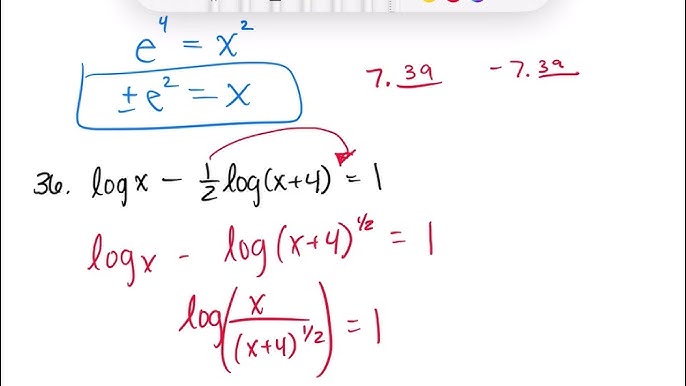 e⁴ = x²
±e² = x
7.39 -7.39
36. log x - 1/2 log(x+4) = 1
log x - log(x+4)^1/2 = 1
log(x/(x+4)^1/2) = 1